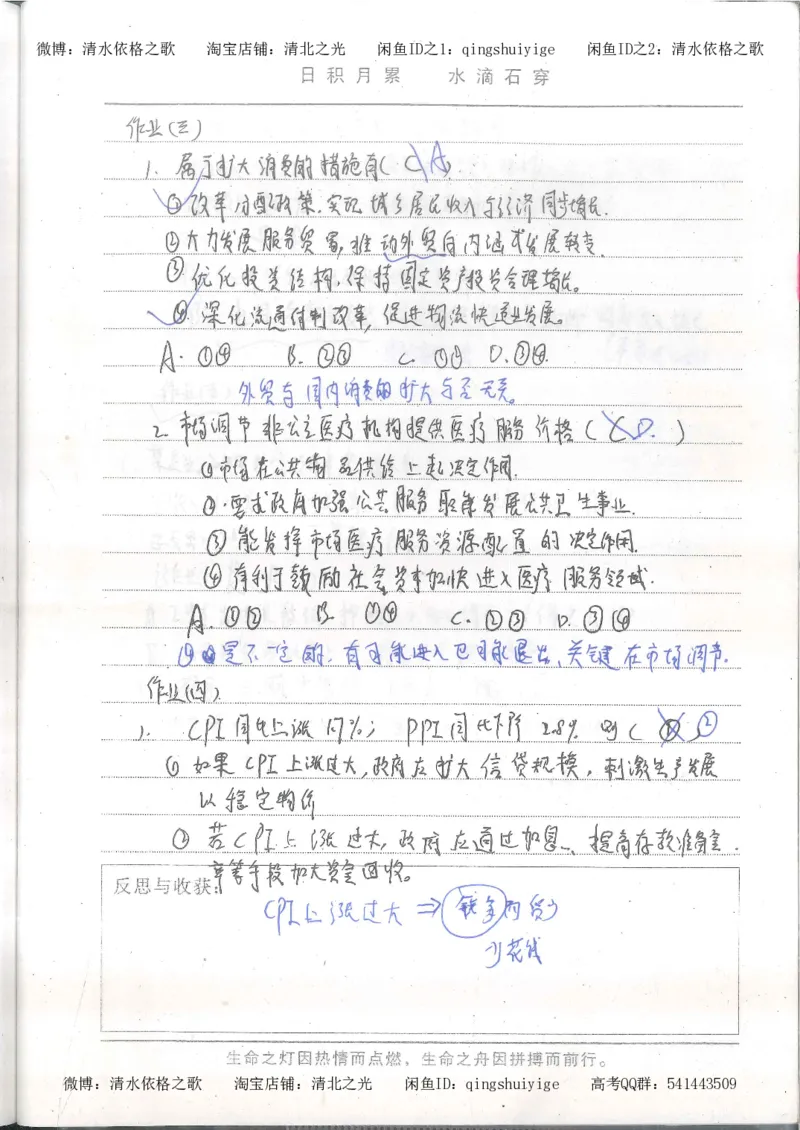 微博：清水依格之歌 淘宝店铺：清北之光 闲鱼ID之1：qingshuiyige 闲鱼ID之2：清水依格之歌
日积月累 水滴石穿
作业(三)
1. 属于扩大消费的措施有( C A )
①改革分配政策.实现城乡居民收入与经济同步增长.
②大力发展服务贸易,推动外贸向内涵式发展转变.
③优化投资结构,保持固定资产投资合理增长。
④深化流通体制改革,促进物流快递业发展。
A. ①④ B. ②③ C. ①④ D. ③④.
外贸与国内消费的扩大与否无关。
2. 市场调节非公立医疗机构提供医疗服务价格( C D. )
①市场在公共物品供给上起决定作用.
②.要求政府加强公共服务职能发展公共卫生事业.
③能发挥市场医疗服务资源配置的决定作用.
④有利于鼓励社会资本加快进入医疗服务领域.
A. ①② B. ①④ C. ②③ D. ③④
④是不一定的.有可能进入也可能退出、关键在市场调节.
作业(四)
1. CPI同比上涨 PPI同比下降 2.8% 则( ②
①如果CPI上涨过大,政府应扩大信贷规模,刺激生产发展
以稳定物价
②若CPI上涨过大,政府应通过加息、提高存款准备金.
率等手段加大资金回收。
反思与收获：
CPI上涨过大⇒钱多 货少
少花钱
生命之灯因热情而点燃，生命之舟因拼搏而前行。
微博：清水依格之歌 淘宝店铺：清北之光 闲鱼ID：qingshuiyige 高考QQ群：541443509